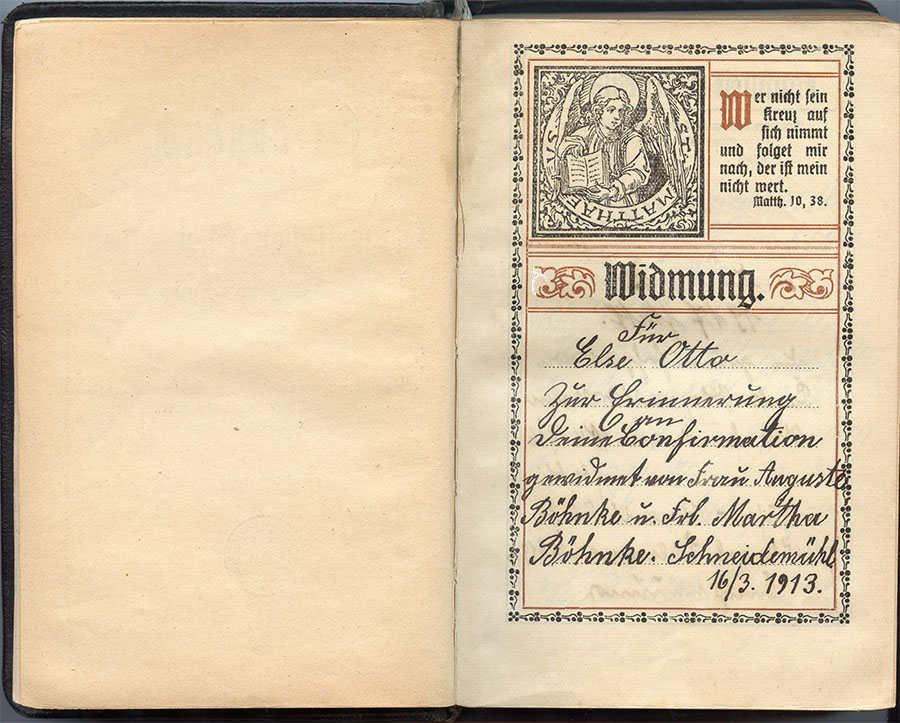 ST. MATTHAEUS
Wer nicht sein
Kreuz auf
sich nimmt
und folget mir
nach, der ist mein
nicht wert.
Matth. 10, 38.
Widmung.
Für
Else Otto
Zur Erinnerung
an
Deine Confirmation
gewidmet von Frau Auguste
Böhnke u. Frl. Martha
Böhnke. Schneidemühl
16/3. 1913.